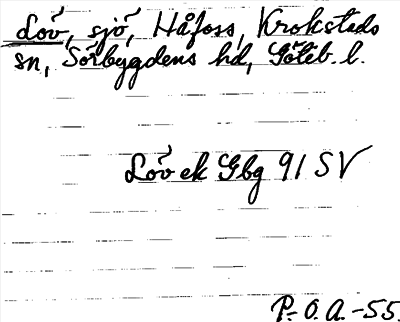 Lov́, sjö, Håfoss, Krokstads
sn, Sörbygdens hd, Göteb. l.
Lov́ ek Gbg 91 SV
P.-O.A.-55.